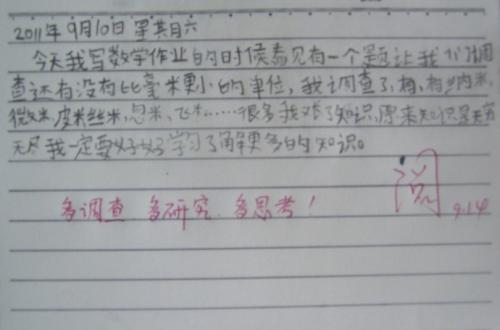 2011年9月10日 星其月六
今天我写数学作业的时候看见有一个题让我们调
查还有没有比毫米更小的单位，我调查了,有,有纳米,
微米,皮米丝米,忽米,飞米……很多我对了知识,原来知识是无穷
无尽我一定要好好学习了解更多的知识。
多调查 多研究 多思考！
阅
9.14